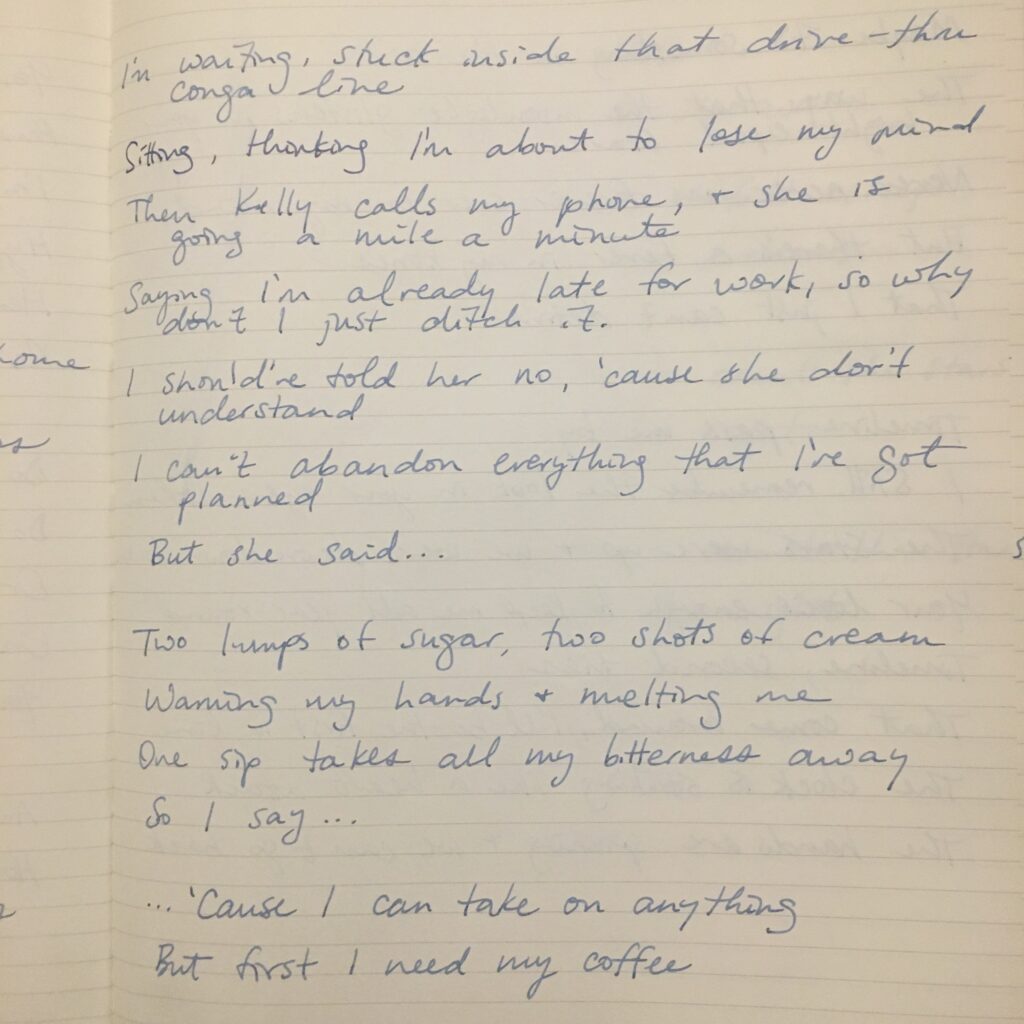 I'm waiting, stuck inside that drive-thru
conga line
Sitting, thinking I'm about to lose my mind
Then Kelly calls my phone, + she is
going a mile a minute
Saying I'm already late for work, so why
don't I just ditch it.
I should've told her no, 'cause she don't
understand
I can't abandon everything that I've got
planned
But she said...
Two lumps of sugar, two shots of cream
Warming my hands + melting me
One sip takes all my bitterness away
So I say...
...'Cause I can take on anything
But first I need my coffee